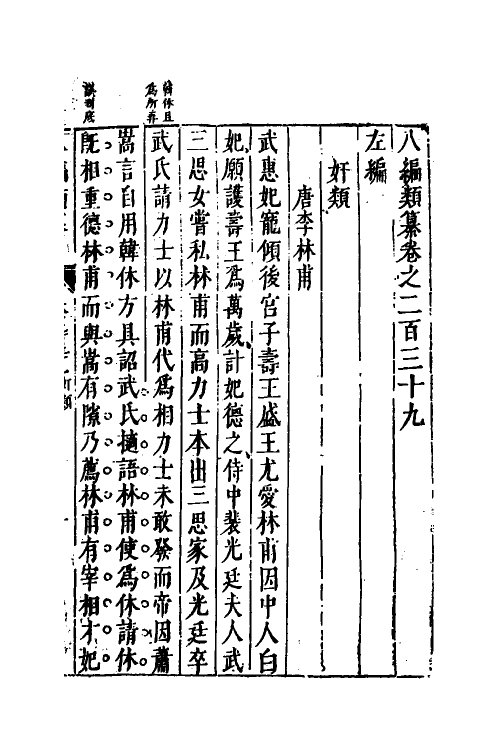 八編類纂卷之二百三十九
左編
奸類
唐李林甫
武惠妃寵傾後宮子壽王盛王尤愛林甫因中人白
妃願護壽王爲萬歲計妃德之侍中裴光廷夫人武
三思女嘗私林甫而高力士本出三思家及光廷卒
武氏請力士以林甫代爲相力士未敢發而帝因蕭
嵩言自用韓休方具詔武氏擿語林甫使爲休請休
既相重德林甫而與嵩有隙乃薦林甫有宰相才妃
韓休且
爲所弄